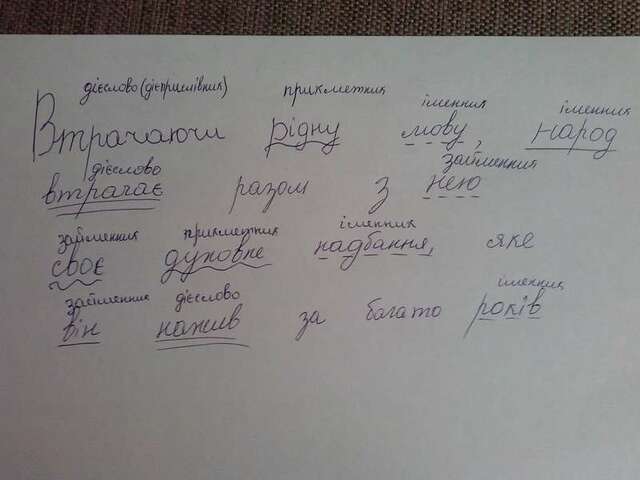 дієслово (дієприслівник) прикметник іменник іменник
Втрачаючи рідну мову, народ
дієслово займенник
втрачає разом з нею
займенник прикметник іменник
своє духовне надбання, яке
займенник дієслово іменник
він нажив за багато років